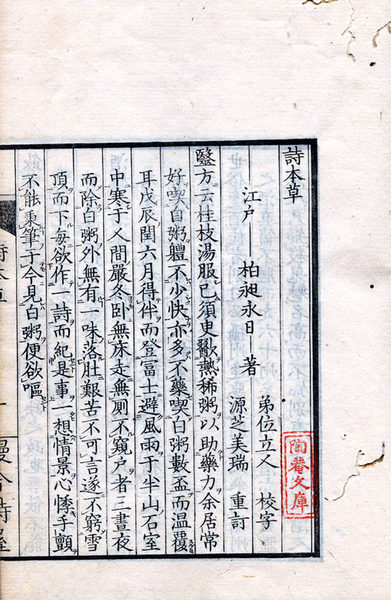 詩本草
江戸 柏昶永日 著
弟位立人 校字
源芝美瑞 重訂
毉方云桂枝湯服已須臾歠熱稀粥以助藥力余居常
好喫白粥軆不少快亦多不藥喫白粥數盃而温覆
耳戊辰閏六月得伴而登冨士避風雨于半山石室
中寒于人間嚴冬卧無床走無厠不窺戸者二晝夜
而除白粥外無有一味落肚艱苦不可言遂不窮雪
頂而下每欲作一詩而紀是事一想情景心悸手顫
不能秉筆于今見白粥便欲嘔
詩本草
一
陶菴文庫